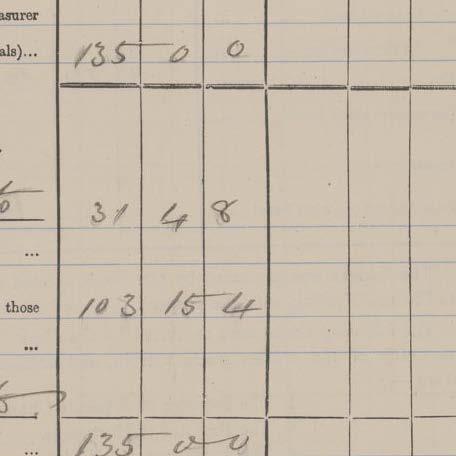 asurer
als)... 135 0 0
31 4 8
...
those 103 15 4
...
... 135 0 0